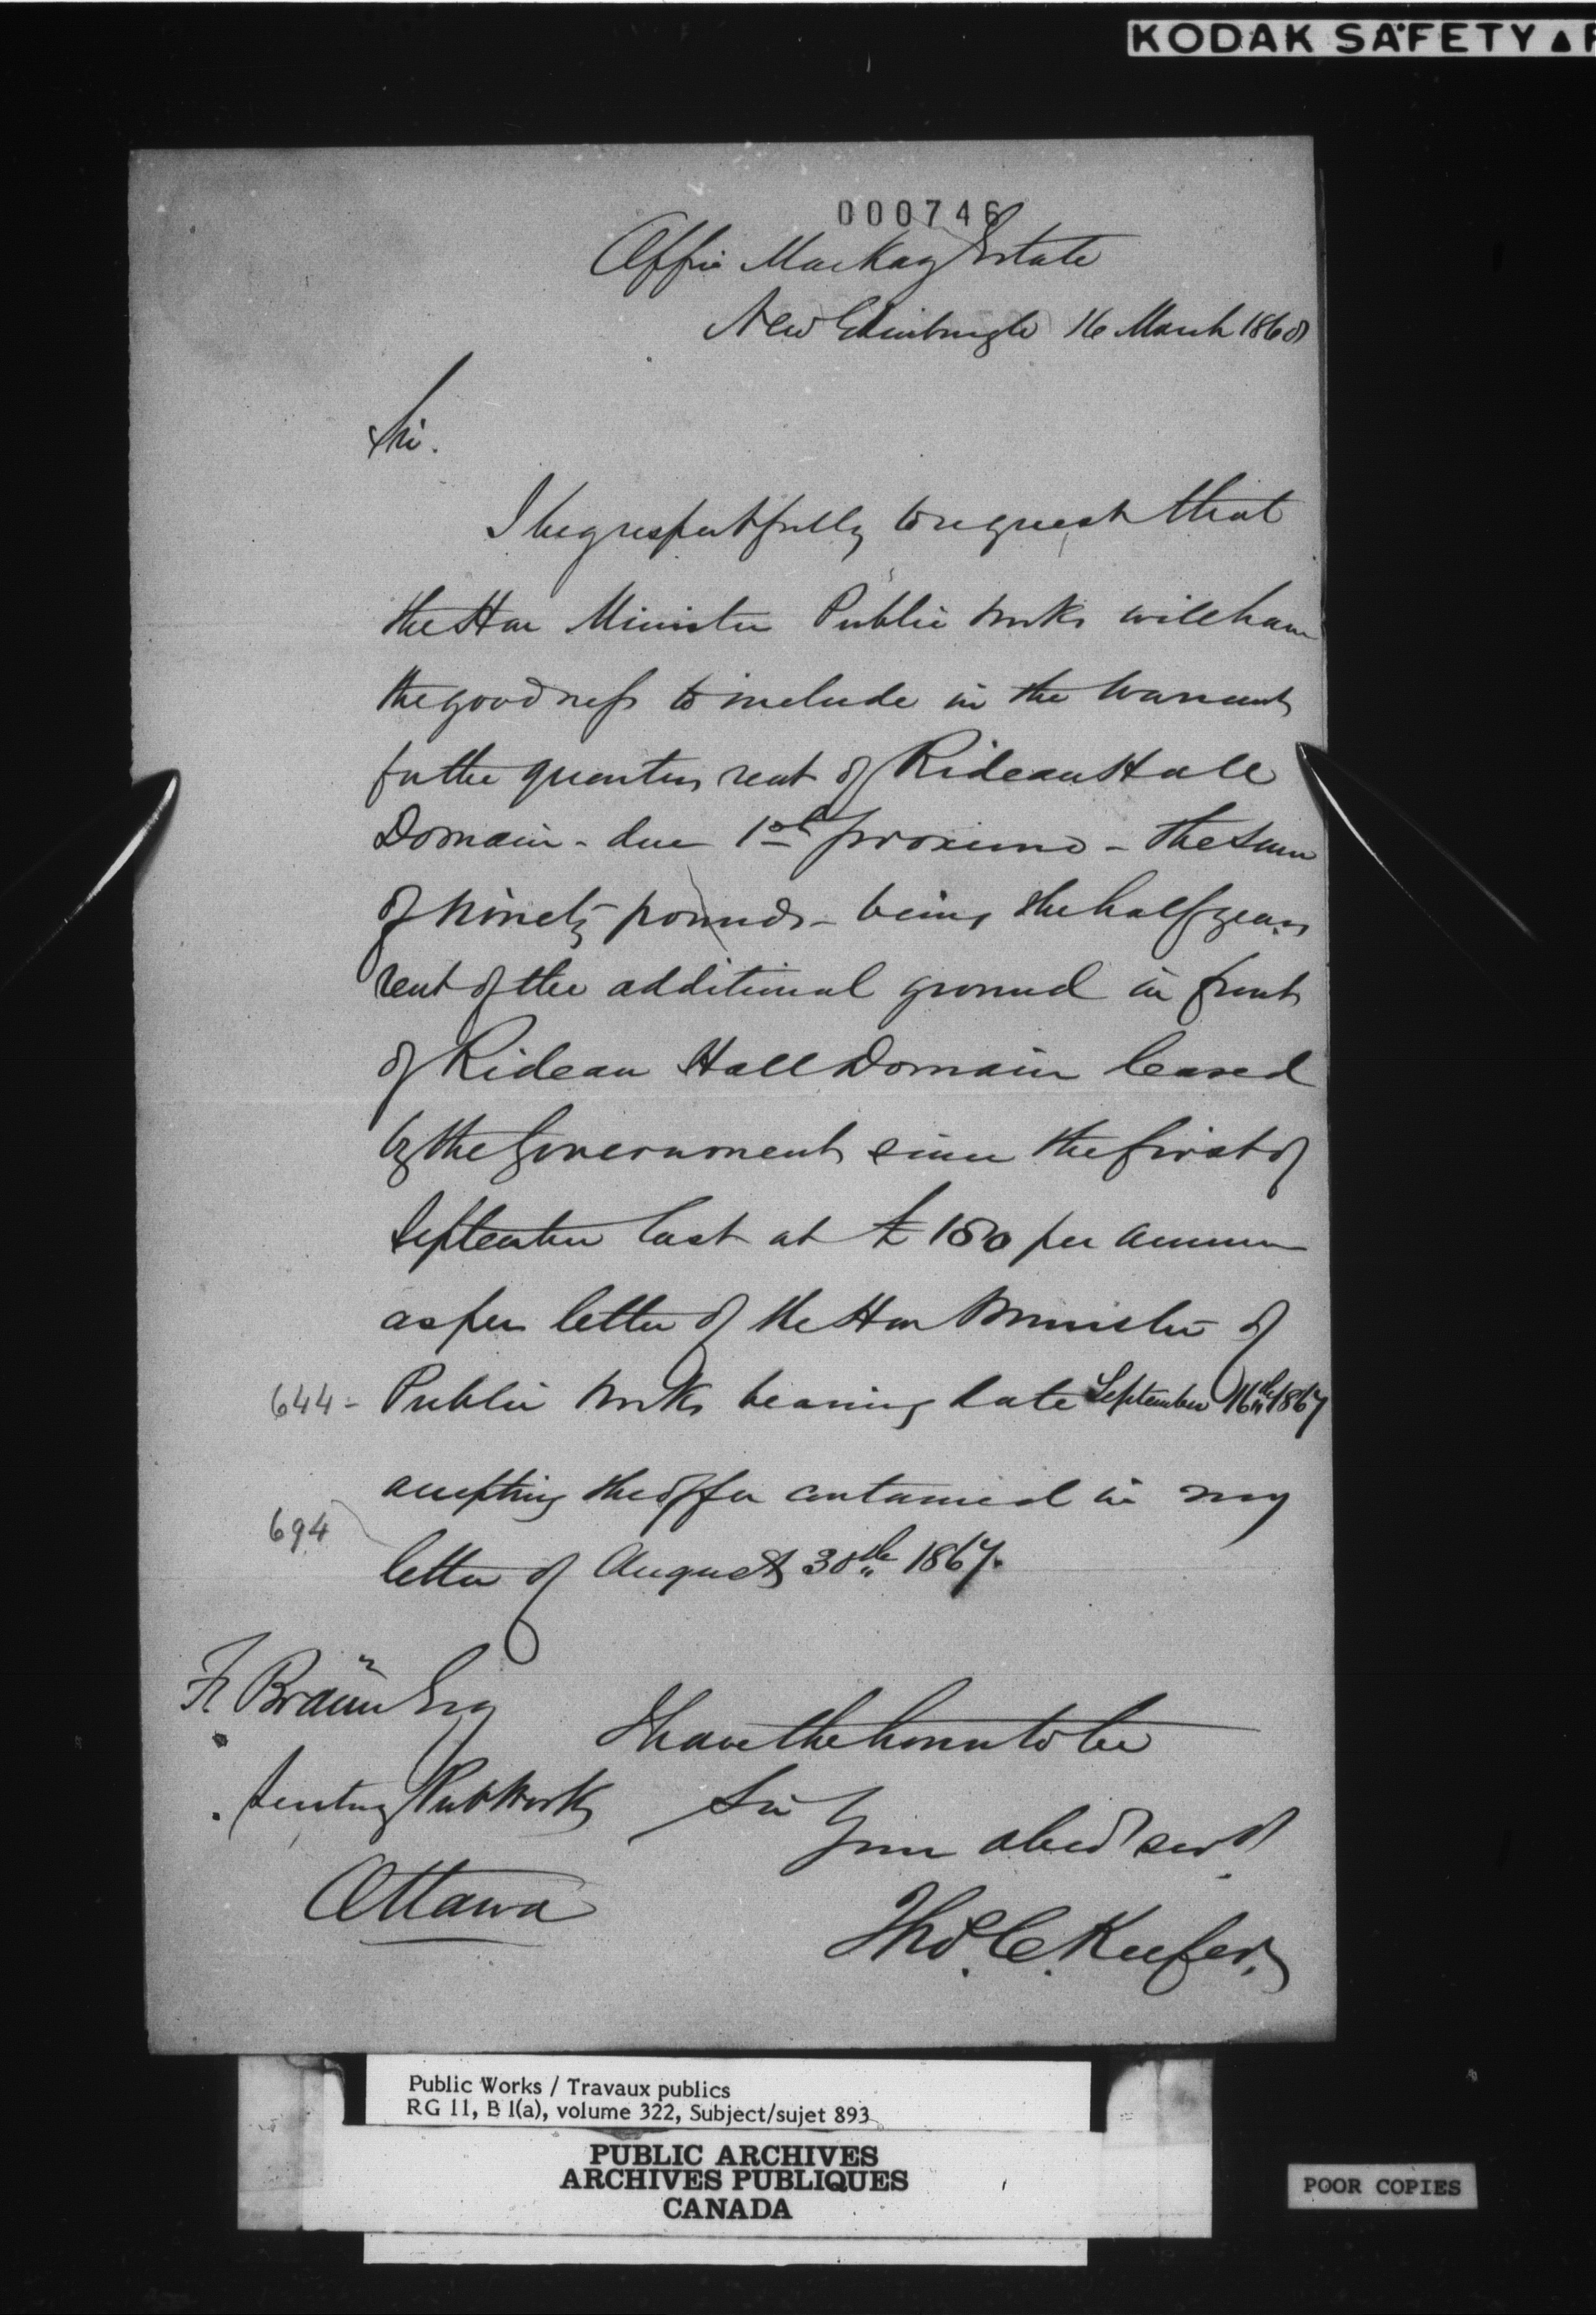 KODAK SAFETY
000746
Office MacKay Estate
New Edinburgh 16 March 1868
Sir.
I beg respectfully to request that
the Hon Minister Public Works will have
the goodness to include in the Warrant
for the quarters rent of Rideau Hall
Domain - due 1st proximo - the sum
of ninety pounds - being the half years
rent of the additional ground in front
of Rideau Hall Domain leased
by the Government since the first of
September last at £180 per annum
as per letter of the Hon Minister of
644 - Public Works bearing date September 16th 1867
accepting the offer contained in my
694
letter of August 30th 1867.
F. Braun Esq
I have the honor to be
Secretary Pub Works
Sir
Your obed servt
Ottawa
Thos. C. Keefer.
Public Works / Travaux publics
RG 11, B 1(a), volume 322, Subject/sujet 893
PUBLIC ARCHIVES
ARCHIVES PUBLIQUES
CANADA
POOR COPIES